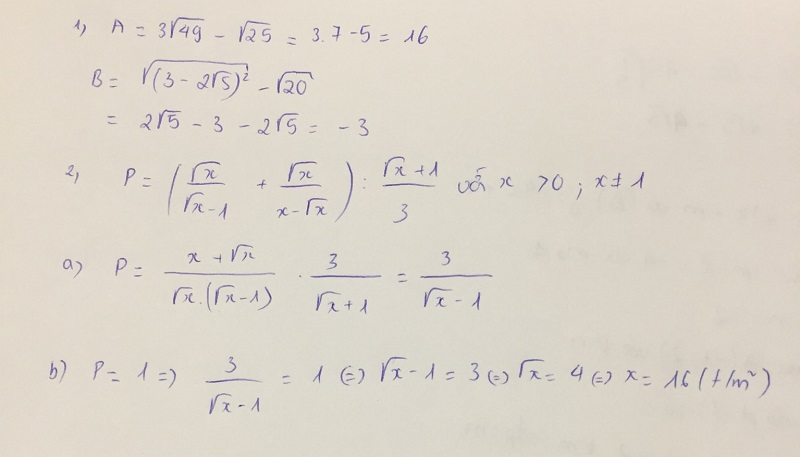 1, A = 3√49 - √25 = 3.7 - 5 = 16
B = √(3 - 2√5)² - √20
= 2√5 - 3 - 2√5 = -3
2, P = (√x/(√x-1) + √x/(x-√x)) : (√x+1)/3 với x >0 ; x≠1
a) P = (x+√x)/(√x.(√x-1)) . 3/(√x+1) = 3/(√x-1)
b) P = 1 => 3/(√x-1) = 1 (=) √x-1 = 3 (=) √x = 4 (=) x = 16 (t/m²)